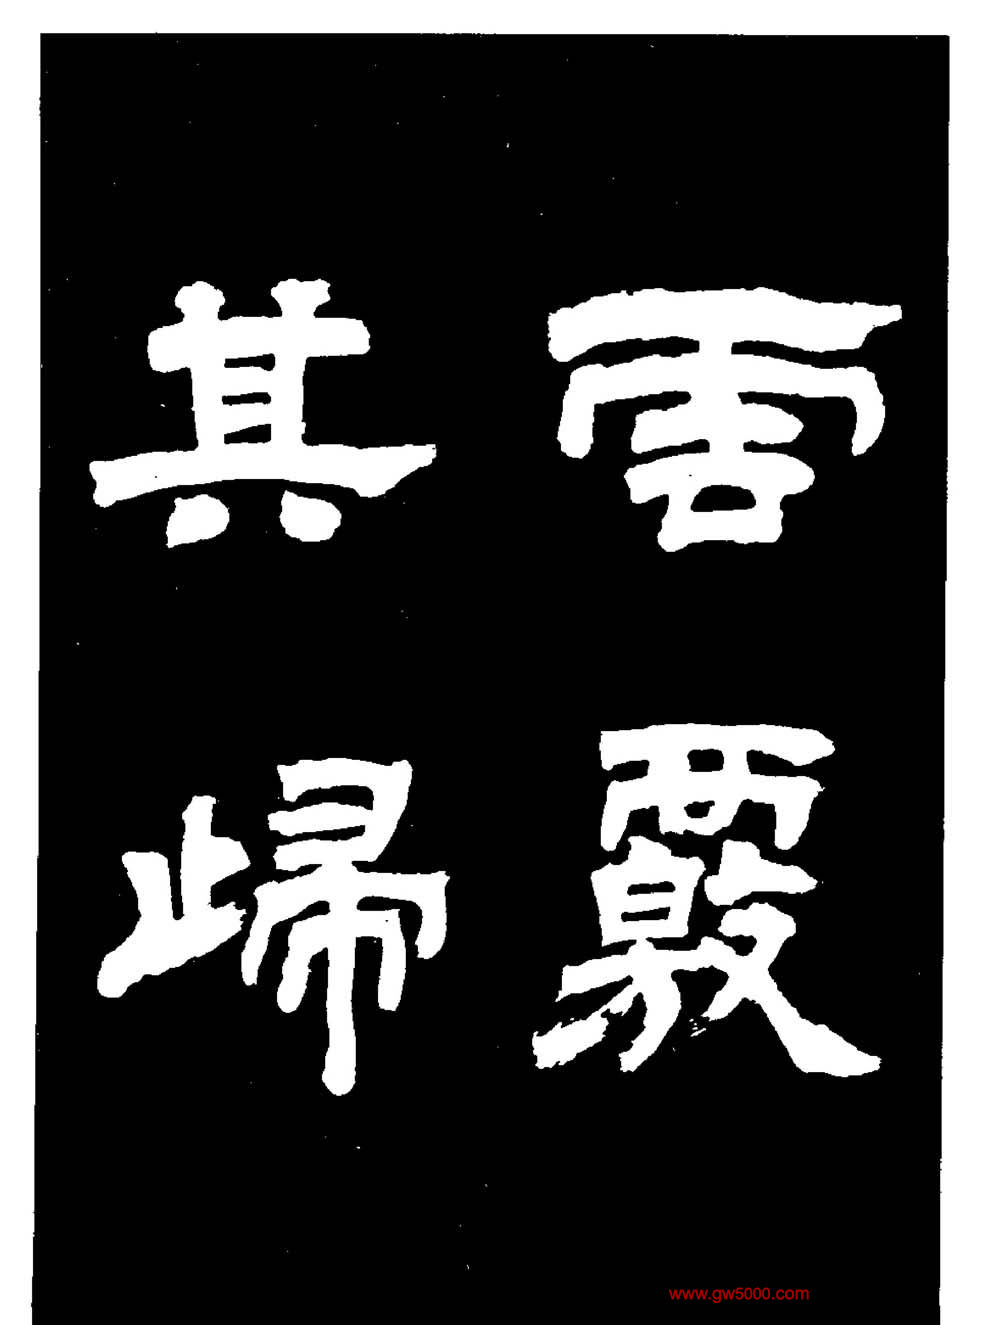 雲覈
其歸
www.gw5000.com